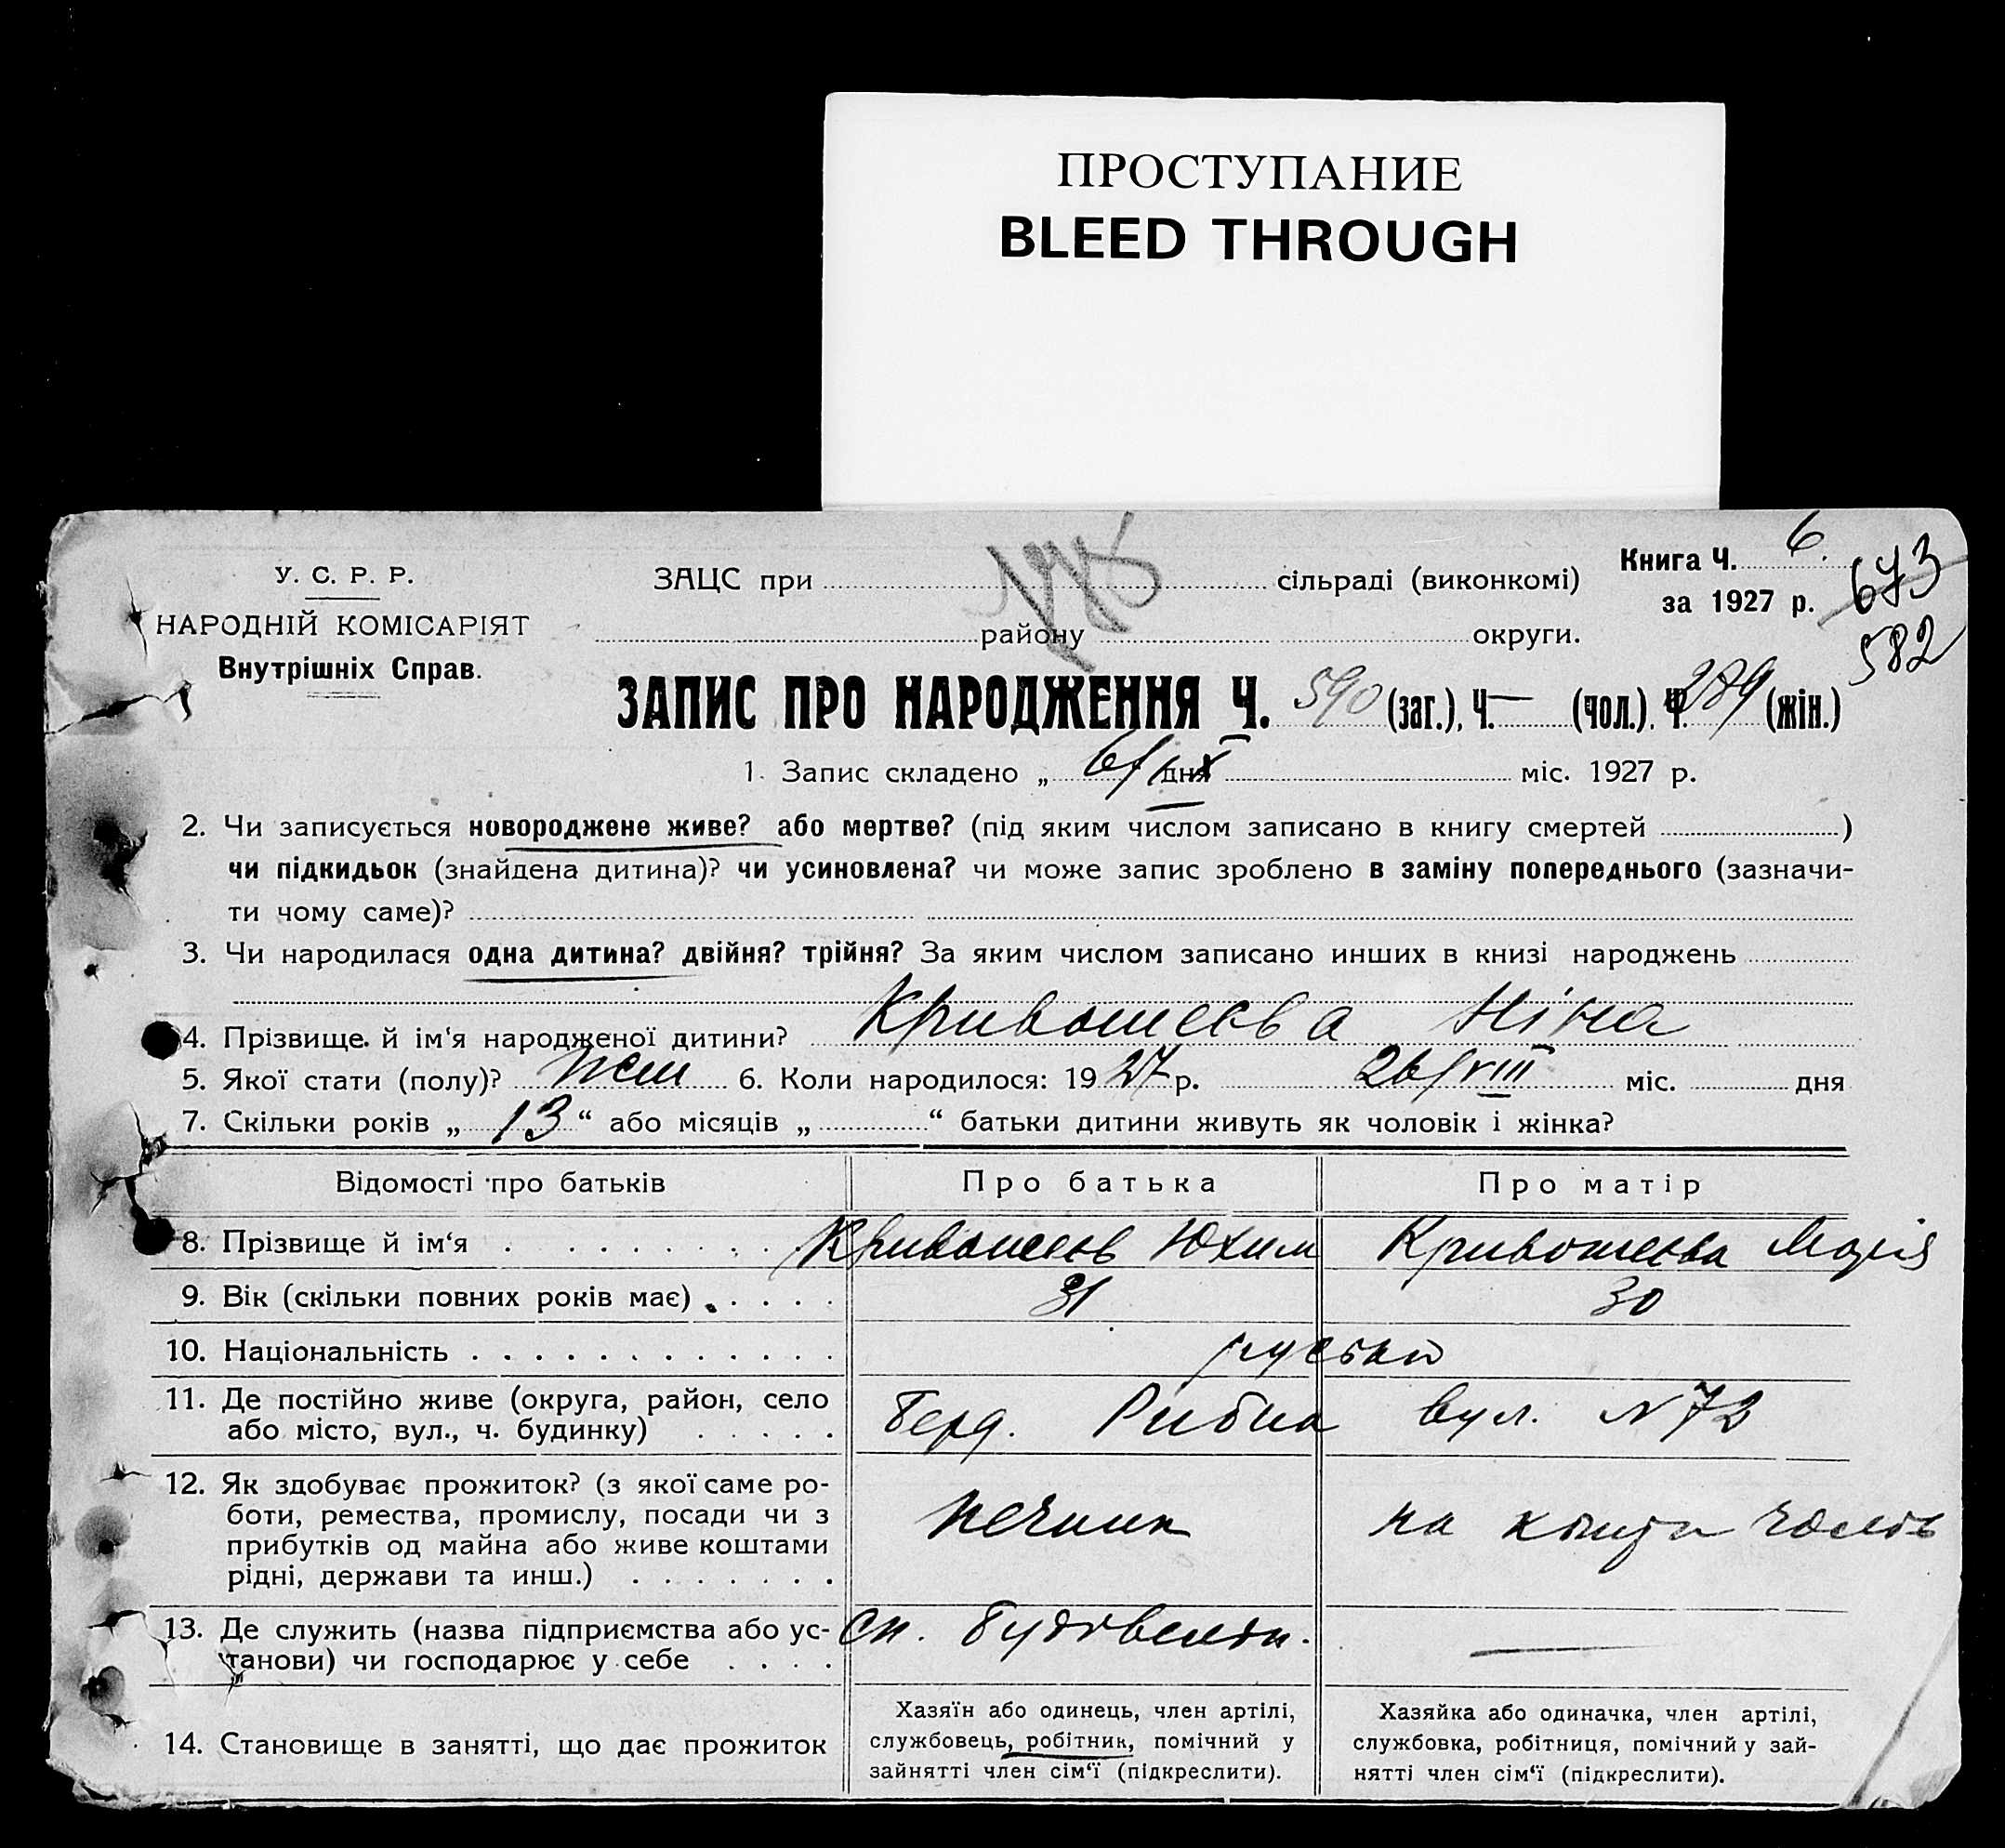 ПРОСТУПАНИЕ
BLEED THROUGH
У. С. Р. Р.
НАРОДНІЙ КОМІСАРІЯТ
Внутрішніх Справ.
ЗАЦС при сільраді (виконкомі)
району округи.
Книга Ч. 6.
за 1927 р. 673
582
ЗАПИС ПРО НАРОДЖЕННЯ Ч. 590 (заг.), Ч. — (чол.). Ч. 289 (жін.)
1. Запис складено „ 6/IX дня міс. 1927 р.
2. Чи записується новороджене живе? або мертве? (під яким числом записано в книгу смертей )
чи підкидьок (знайдена дитина)? чи усиновлена? чи може запис зроблено в заміну попереднього (зазначи-
ти чому саме)?
3. Чи народилася одна дитина? двійня? трійня? За яким числом записано инших в книзі народжень
4. Прізвище й ім‘я народженої дитини? Кривошеєва Ніна
5. Якої стати (полу)? жен 6. Коли народилося: 1927 р. 26/VIII міс. дня
7. Скільки років „ 13 “ або місяців „ “ батьки дитини живуть як чоловік і жінка?
Відомості про батьків Про батька Про матір
8. Прізвище й ім‘я Кривошеєв Юхим Кривошеєва Марія
9. Вік (скільки повних років має) 31 30
10. Національність руськи
11. Де постійно живе (округа, район, село
або місто, вул., ч. будинку) Берд. Рибна вул. №72
12. Як здобуває прожиток? (з якої саме ро-
боти, ремества, промислу, посади чи з
прибутків од майна або живе коштами
рідні, держави та инш.) печник на кошти
13. Де служить (назва підприємства або ус-
танови) чи господарює у себе сп. будівельн. —
14. Становище в занятті, що дає прожиток
Хазяїн або одинець, член артілі,
службовець, робітник, помічний у
зайнятті член сім‘ї (підкреслити).
Хазяйка або одиначка, член артілі,
службовка, робітниця, помічний у зай-
нятті член сім‘ї (підкреслити).